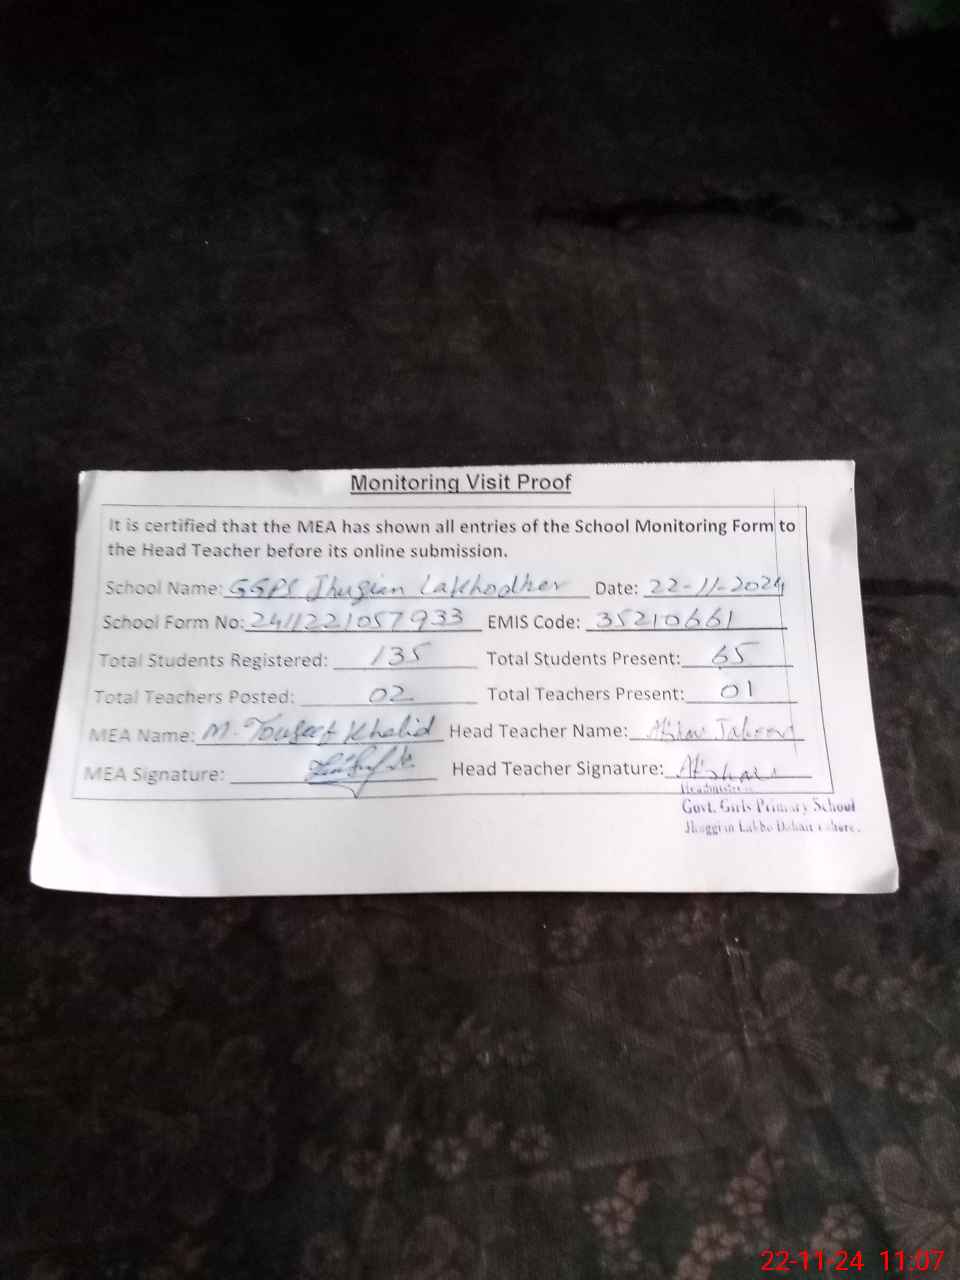 Monitoring Visit Proof
It is certified that the MEA has shown all entries of the School Monitoring Form to
the Head Teacher before its online submission.
School Name: GGPS Jhugian Lakhodher Date: 22-11-2024
School Form No: 2411221057933 EMIS Code: 35210661
Total Students Registered: 135 Total Students Present: 65
Total Teachers Posted: 02 Total Teachers Present: 01
MEA Name: M. Touseef Khalid Head Teacher Name:
MEA Signature: Head Teacher Signature:
Headmistress
Govt. Girls Primary School
22-11-24 11:07